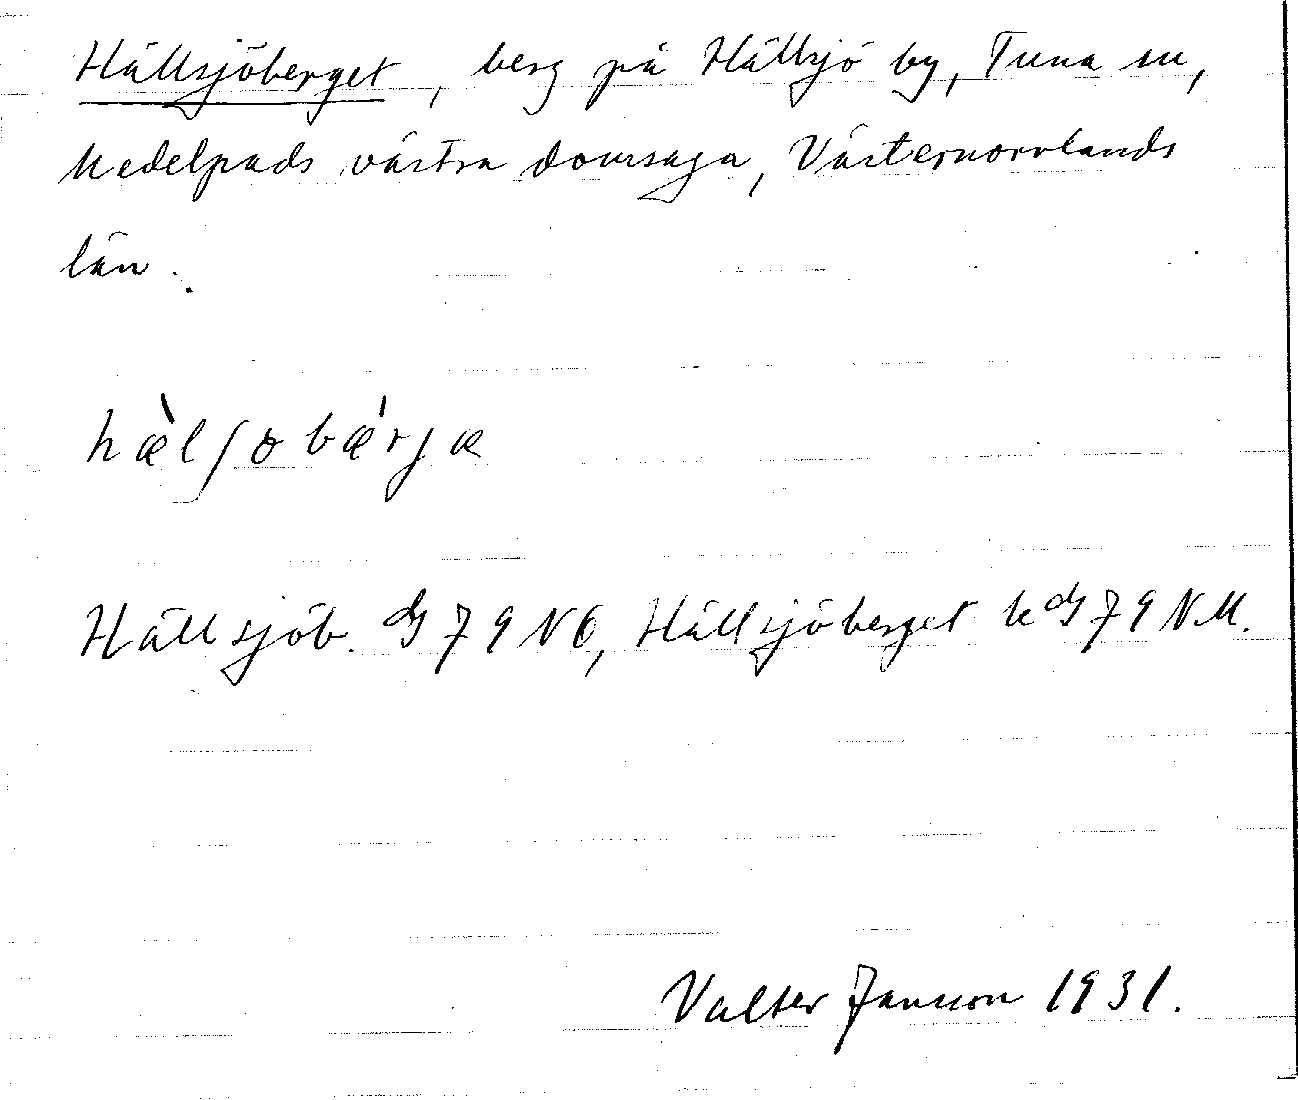 Hällsjöberget, berg på Hällsjö by, Tuna sn,
Medelpads västra domsaga, Västernorrlands
län.
hæ̀lʃobǽrjæ
Hällsjöb. GS 79 NO, Hällsjöberget k GS 79 NM.
Valter Jansson 1931.